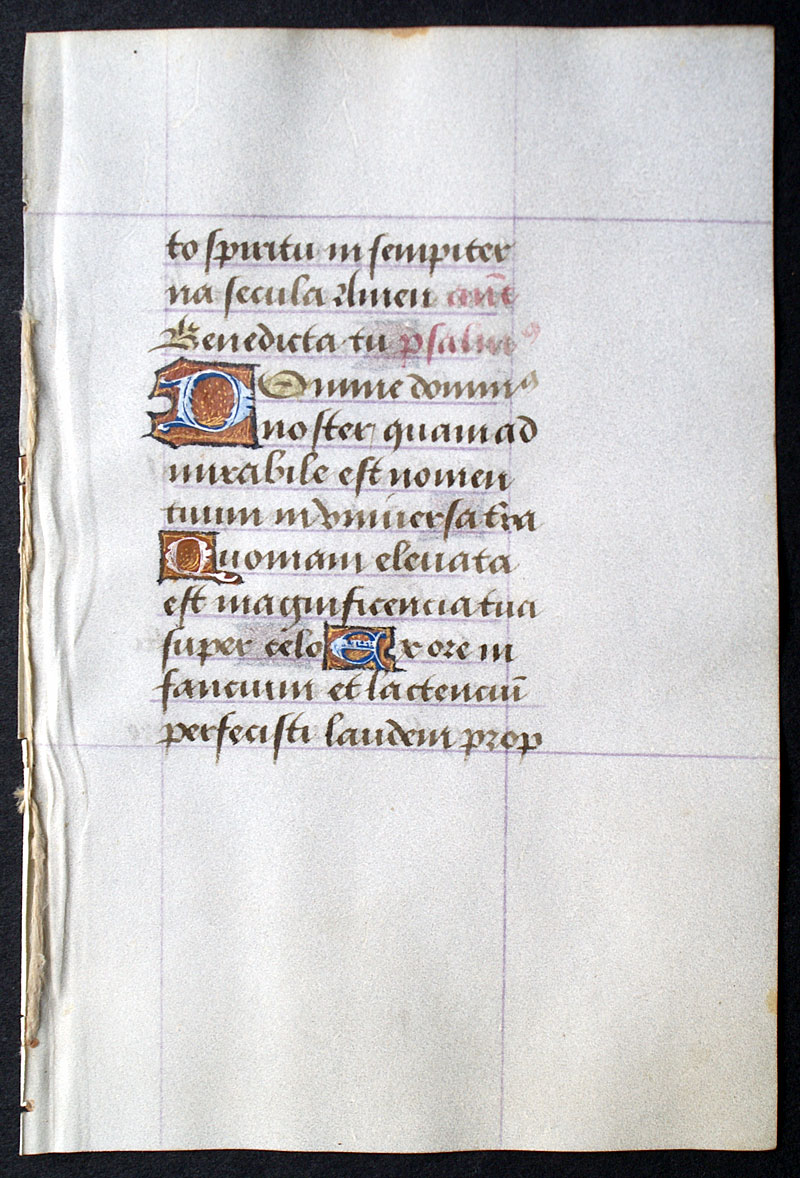 to spiritu in sempiter
na secula Amen añt
Benedicta tu psalmꝰ
DOmine dominꝰ
noster quam ad
mirabile est nomen
tuum in vniuersa tr̄a
Quoniam eleuata
est magnificencia tua
super celos Ex ore in
fancium et lactenciū
perfecisti laudem prop